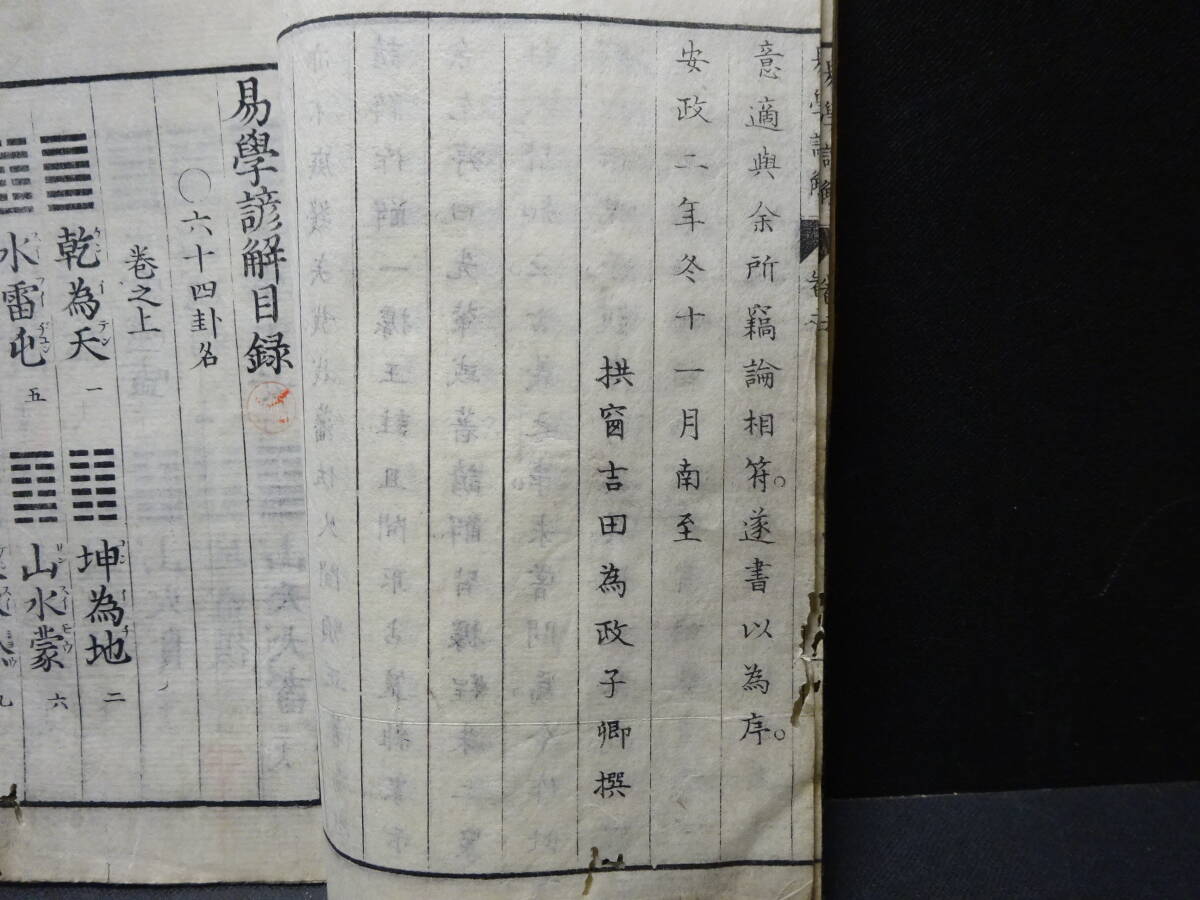 意適與余所竊論相符。遂書以為序。
安政二年冬十一月南至
拱窗吉田為政子卿撰
易學諺解目録
〇六十四卦名
卷之上
乾為天 一
ケン イ テン
坤為地 二
コン イ チ
水雷屯 五
山水蒙 六
九